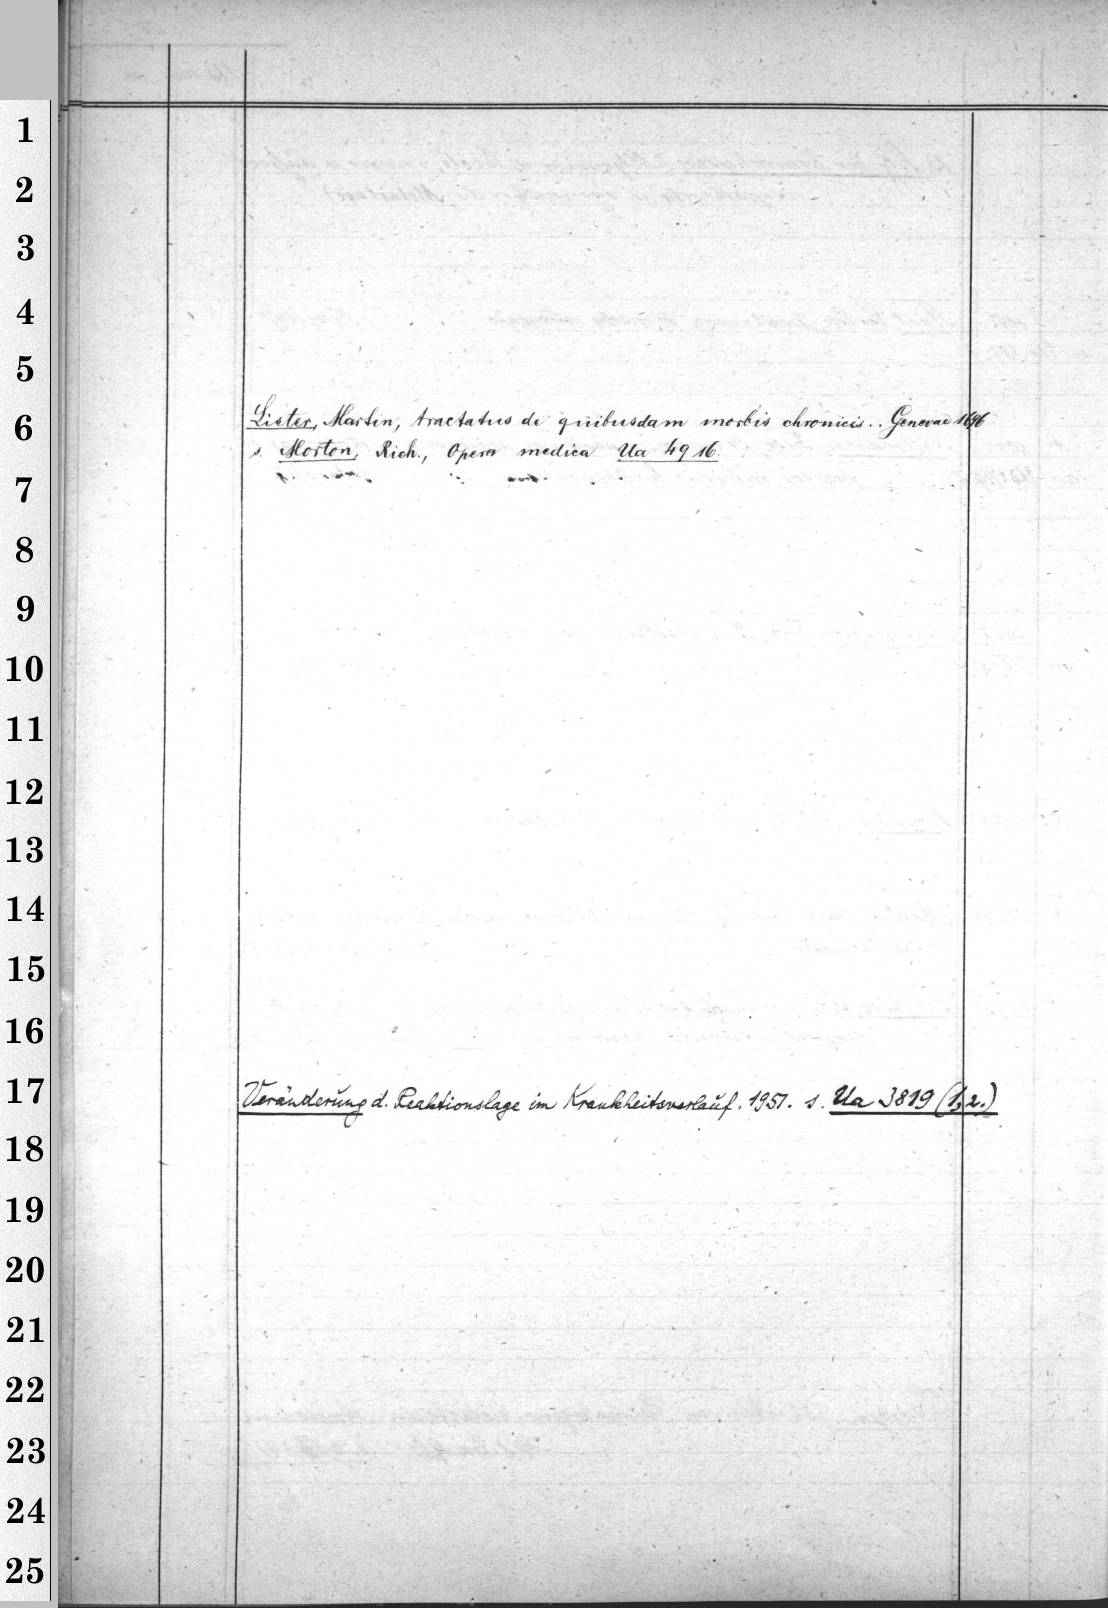 1
2
3
4
5
6
7
8
9
10
11
12
13
14
15
16
17
18
19
20
21
22
23
24
25
Lister, Martin, tractatus de quibusdam morbis chronicis.. Genevae 1696
s. Morton, Rich., Opera medica Ua 49 16.
Veränderung d. Reaktionslage im Krankheitsverlauf. 1951. s. Ua 3819 (1,2.)